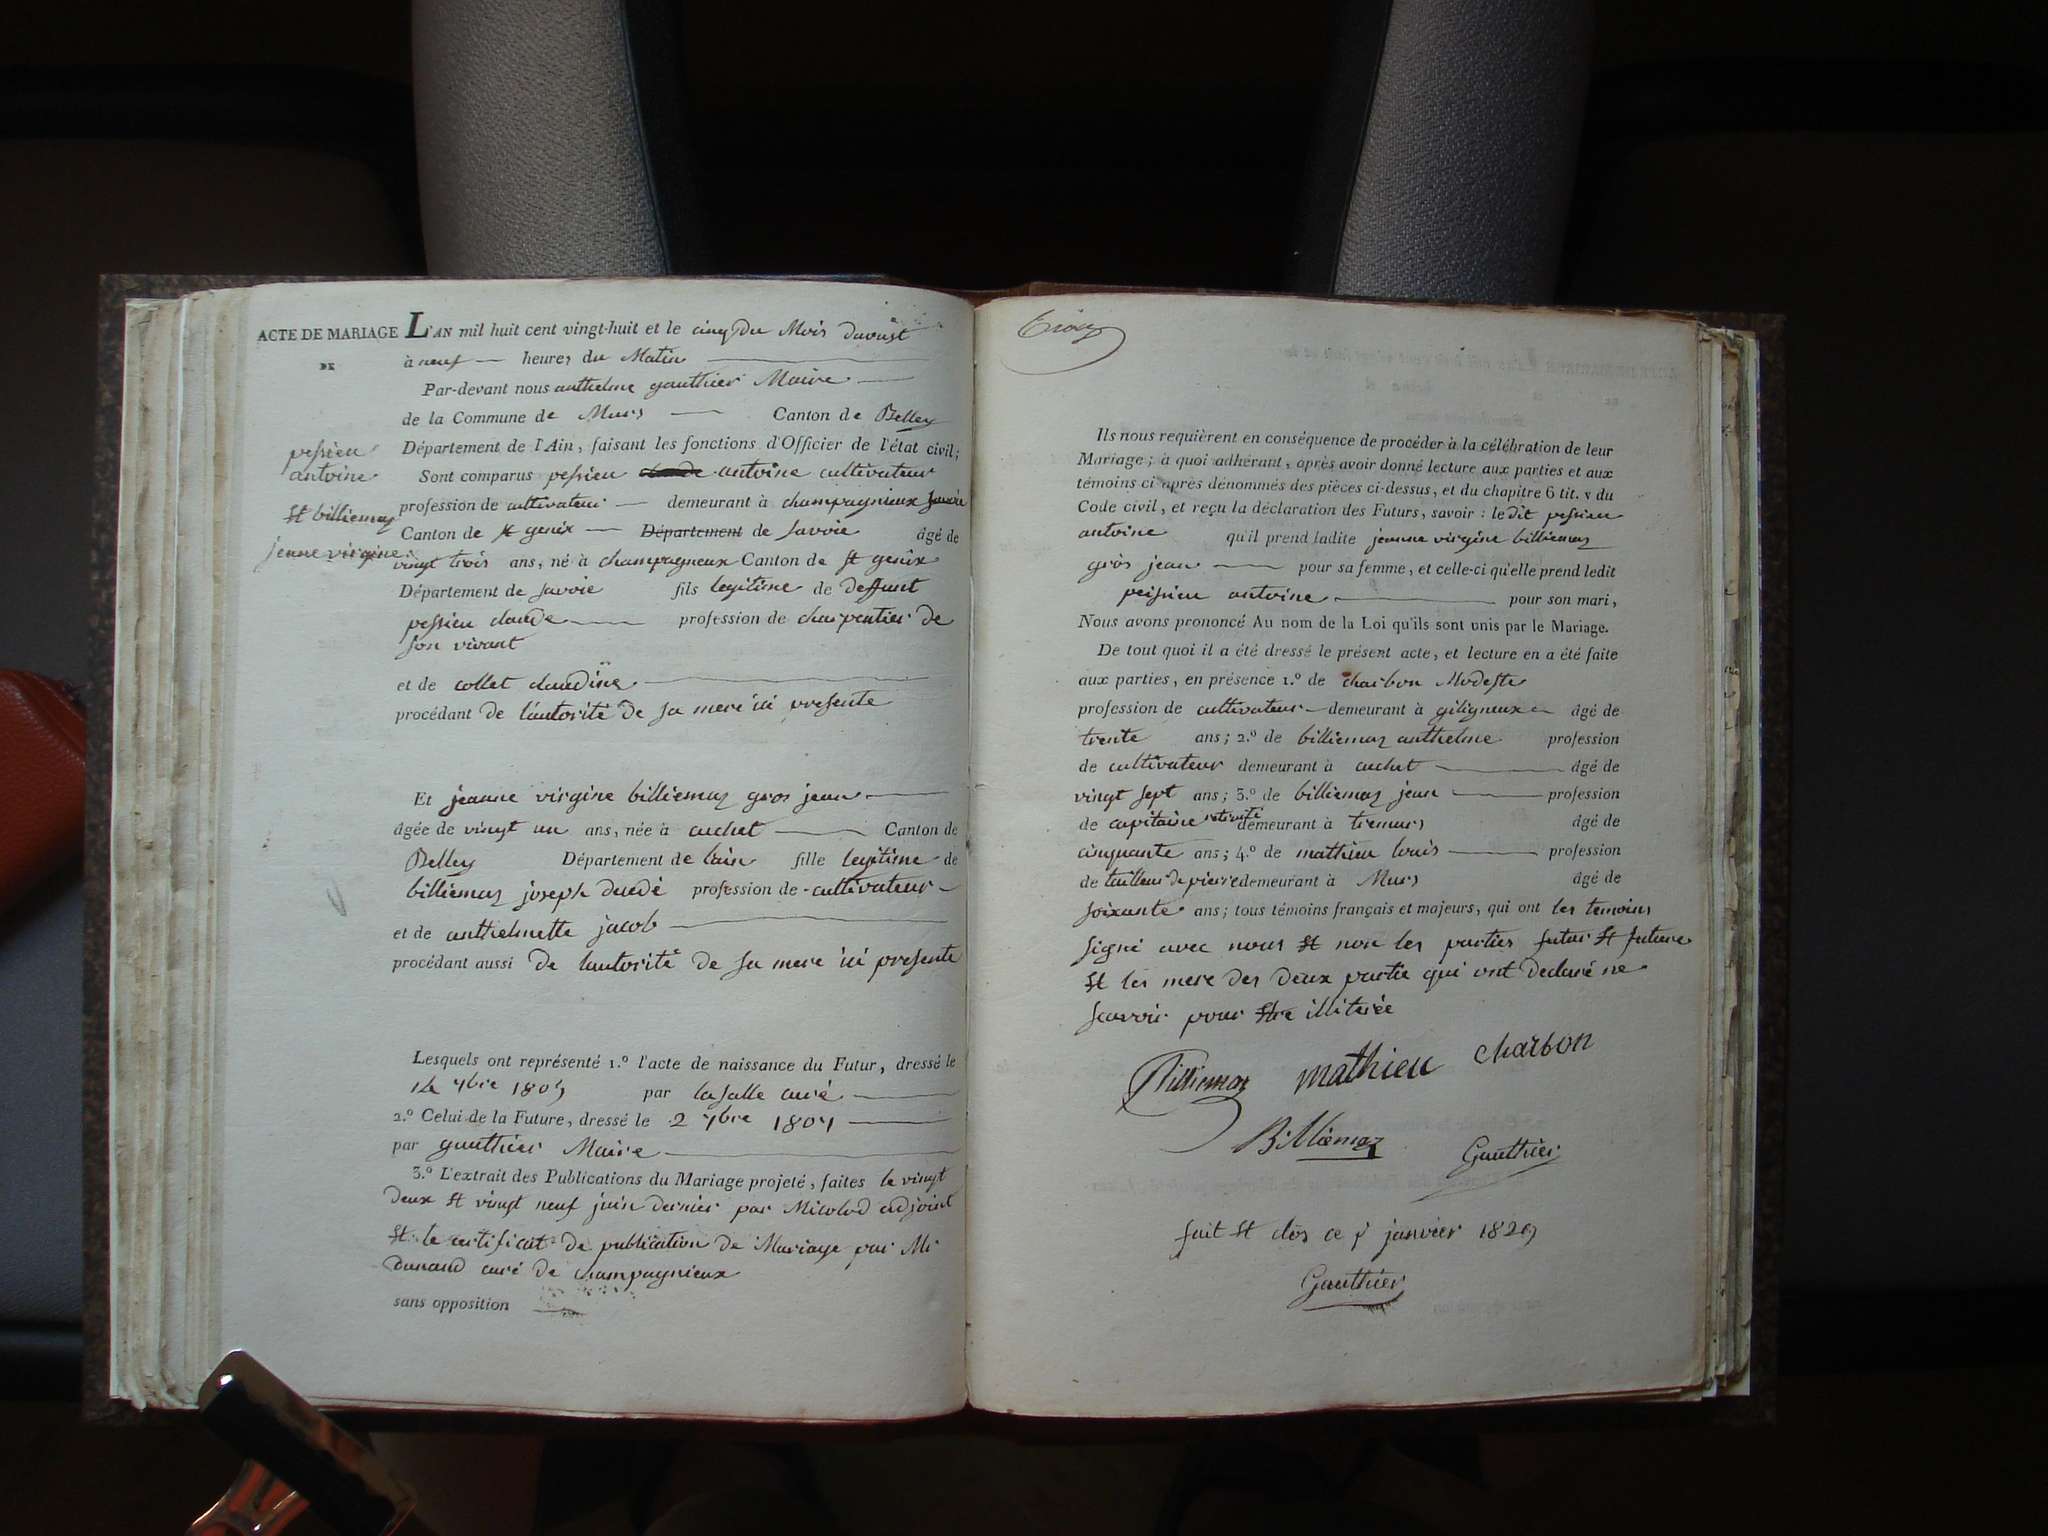 ACTE DE MARIAGE
DE
pessieu
antoine
et billiemaz
jeanne virgine
L'AN mil huit cent vingt-huit et le cinq du Mois daoust
à neuf heures du Matin
Par-devant nous anthelme gauthier Maire
de la Commune de Murs Canton de Belley
Département de l'Ain, faisant les fonctions d'Officier de l'état civil;
Sont comparus pessieu claude antoine cultivateur
profession de cultivateur demeurant à champagnieux savoie
Canton de st genix Département de savoie âgé de
vingt trois ans, né à champagneux Canton de st genix
Département de savoie fils legitime de deffunt
pessieu claude profession de charpentier de
son vivant
et de collet claudine
procédant de lautorité de sa mere ici presente
Et jeanne virgine billiemaz gros jean
âgée de vingt un ans, née à cuchet Canton de
Belley Département de lain fille legitime de
billiemaz joseph profession de cultivateur
et de anthelmette jacob
procédant aussi de lautorité de sa mere ici presente
Lesquels ont représenté 1.º l'acte de naissance du Futur, dressé le
14 7bre 1805 par lasalle curé
2.º Celui de la Future, dressé le 2 7bre 1807
par gauthier Maire
3.º L'extrait des Publications du Mariage projeté, faites le vingt
deux et vingt neuf juin dernier par Micolod adjoint
et le certificat de publication de Mariage par Mr
Dunand curé de champagnieux
sans opposition
Ils nous requièrent en conséquence de procéder à la célébration de leur
Mariage; à quoi adhérant, après avoir donné lecture aux parties et aux
témoins ci après dénommés des pièces ci-dessus, et du chapitre 6 tit. v du
Code civil, et reçu la déclaration des Futurs, savoir: le dit pessieu
antoine qu'il prend ladite jeanne virgine billiemaz
gros jean pour sa femme, et celle-ci qu'elle prend ledit
peissieu antoine pour son mari,
Nous avons prononcé Au nom de la Loi qu'ils sont unis par le Mariage.
De tout quoi il a été dressé le présent acte, et lecture en a été faite
aux parties, en présence 1.º de charbon Modeste
profession de cultivateur demeurant à giligneux âgé de
trente ans; 2.º de billiemaz anthelme profession
de cultivateur demeurant à cuchet âgé de
vingt sept ans; 3.º de billiemaz jean profession
de capitaine retraité demeurant à tremurs âgé de
cinquante ans; 4.º de mathieu louis profession
de tailleur de pierre demeurant à Murs âgé de
soixante ans; tous témoins français et majeurs, qui ont les temoins
signé avec nous et non les parties futur et future
et les mere des deux partie qui ont declaré ne
scavoir pour etre illiterée
Billiemaz mathieu charbon
Billiemaz Gauthier
fait et clos ce janvier 1829
Gauthier